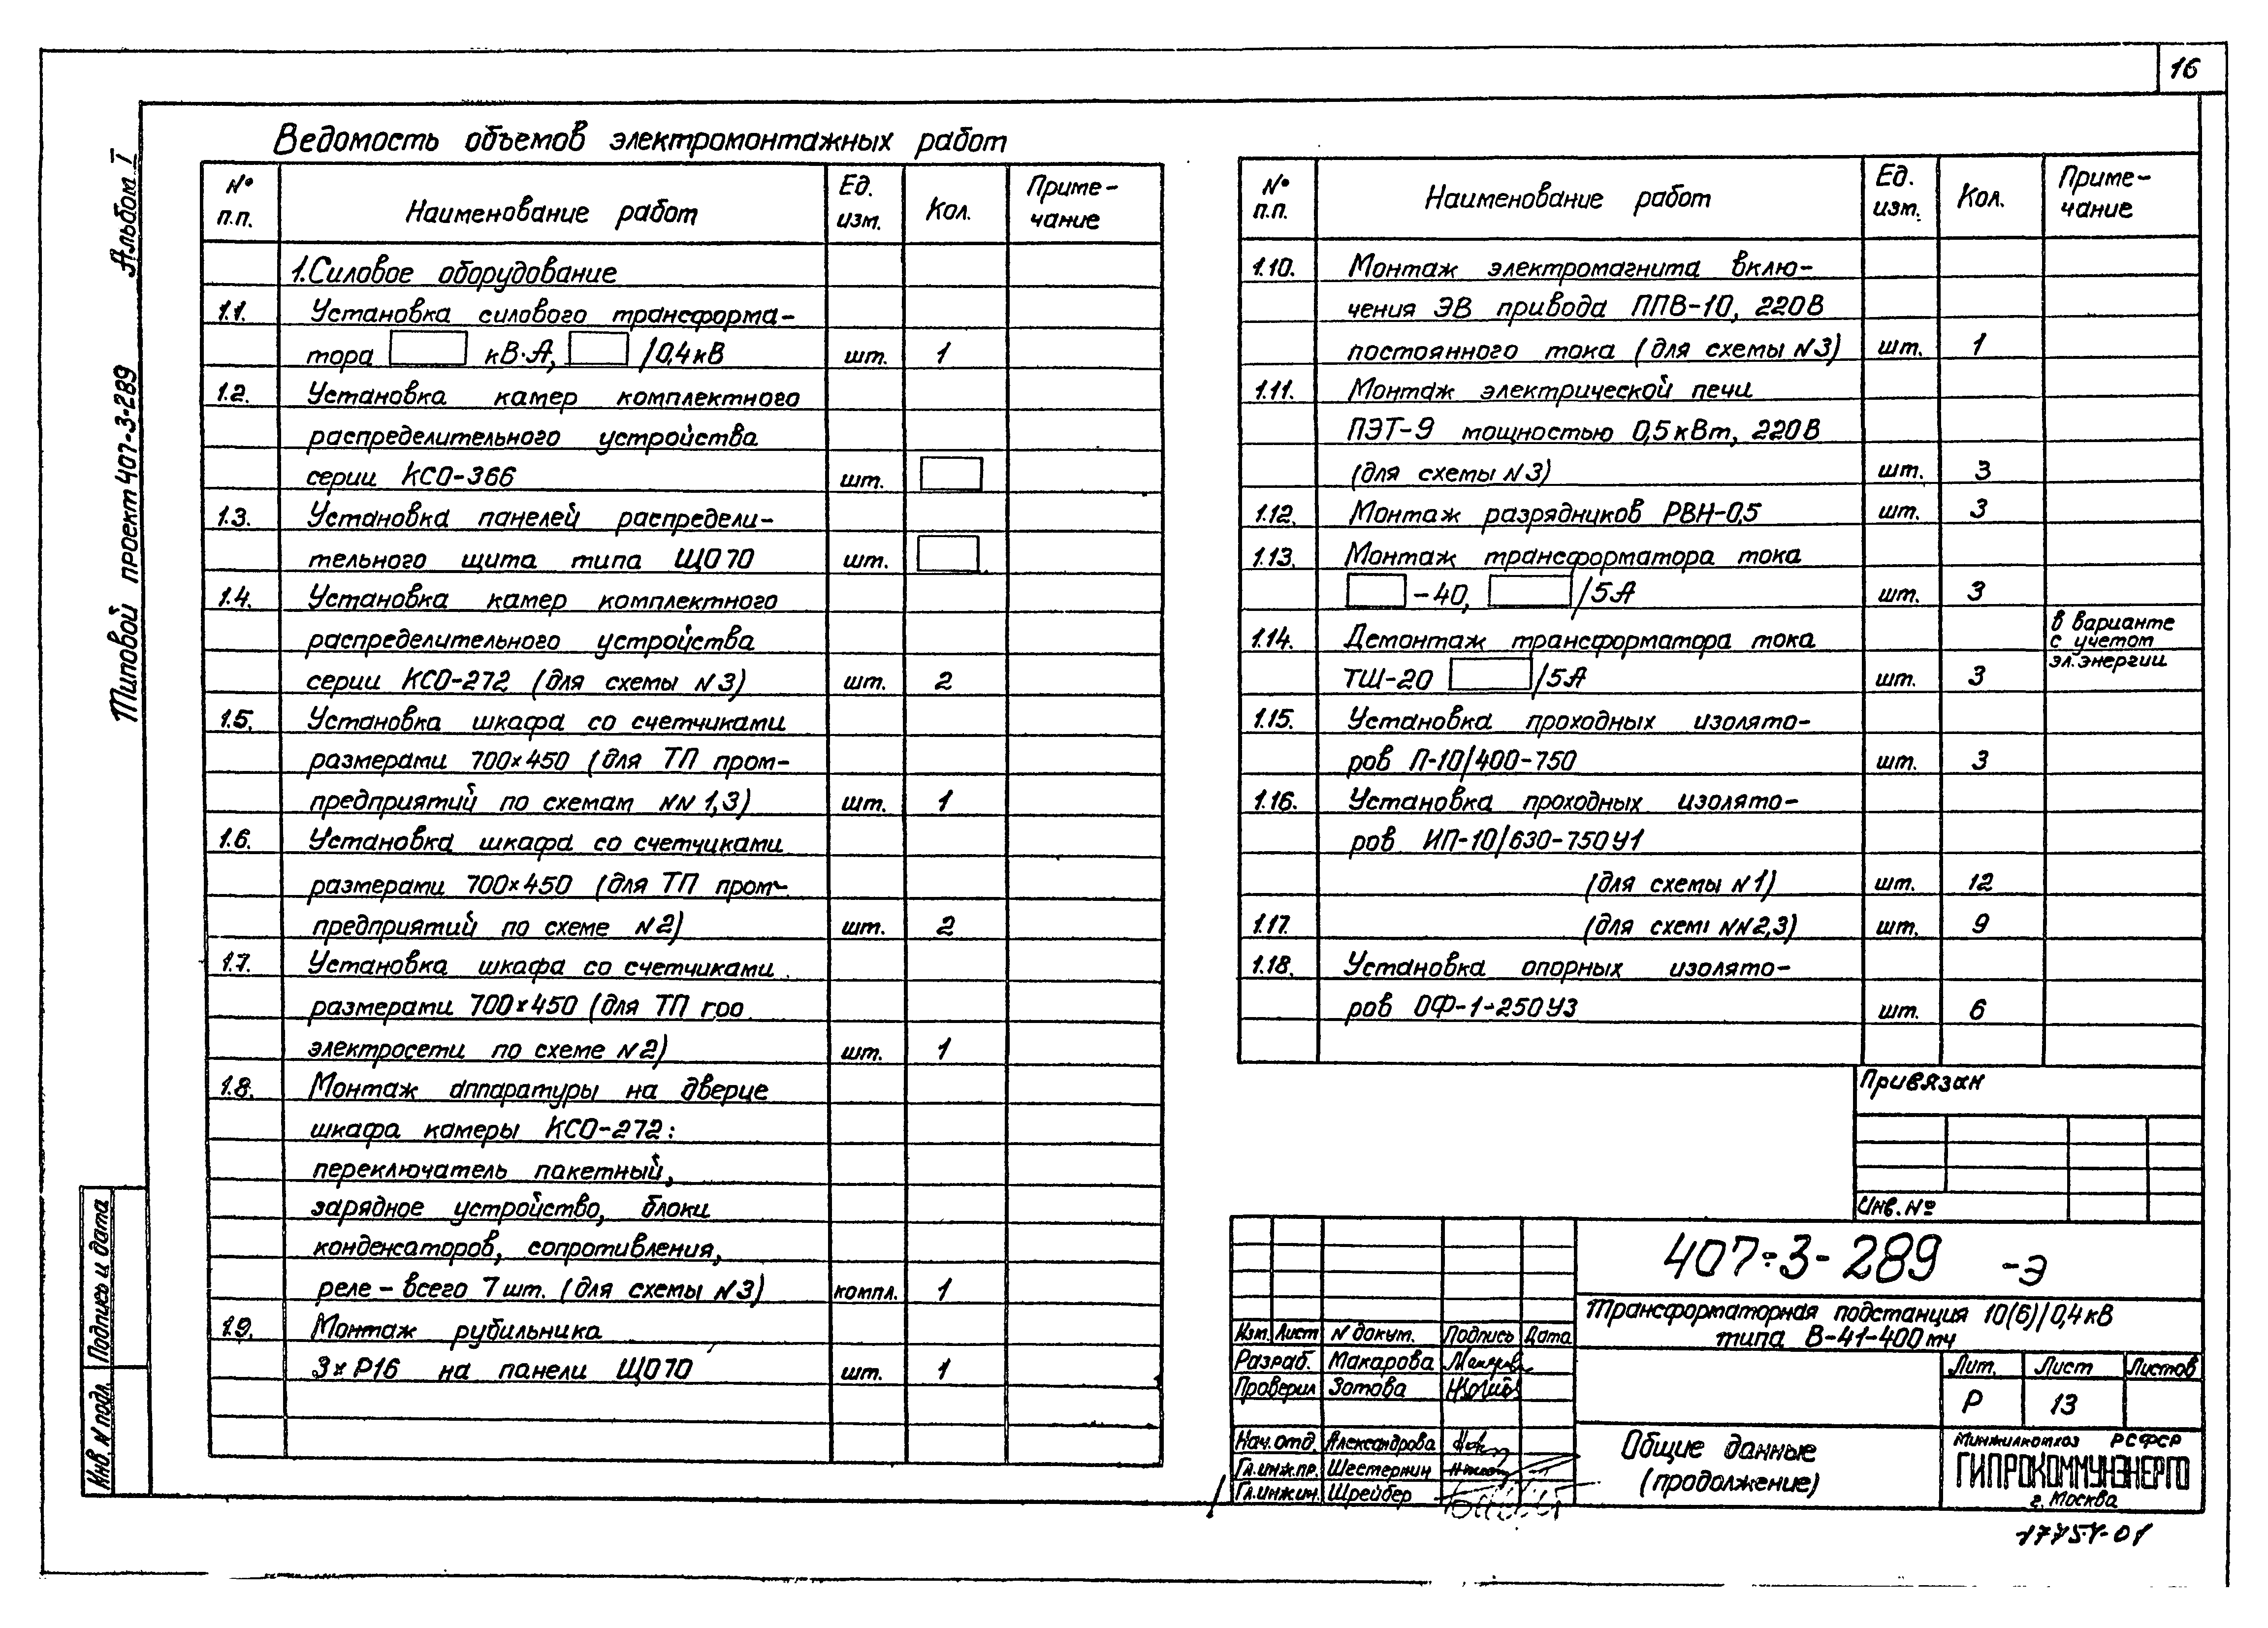 16
Альбом I
Типовой проект 407-3-289
Ведомость объемов электромонтажных работ
№ п.п. Наименование работ Ед. изм. Кол. Приме-чание
1. Силовое оборудование
1.1. Установка силового трансформа-
тора кВ·А, /0,4кВ шт. 1
1.2. Установка камер комплектного
распределительного устройства
серии КСО-366 шт.
1.3. Установка панелей распредели-
тельного щита типа ЩО70 шт.
1.4. Установка камер комплектного
распределительного устройства
серии КСО-272 (для схемы N3) шт. 2
1.5. Установка шкафа со счетчиками
размерами 700×450 (для ТП пром-
предприятий по схемам NN 1,3) шт. 1
1.6. Установка шкафа со счетчиками
размерами 700×450 (для ТП пром-
предприятий по схеме N2) шт. 2
1.7. Установка шкафа со счетчиками
размерами 700×450 (для ТП
электросети по схеме N2) шт. 1
1.8. Монтаж аппаратуры на дверце
шкафа камеры КСО-272:
переключатель пакетный,
зарядное устройство, блоки
конденсаторов, сопротивления,
реле - всего 7 шт. (для схемы N3) компл. 1
1.9. Монтаж рубильника
3×Р16 на панели ЩО70 шт. 1
№ п.п. Наименование работ Ед. изм. Кол. Приме-чание
1.10. Монтаж электромагнита вклю-
чения ЭВ привода ППВ-10, 220В
постоянного тока (для схемы N3) шт. 1
1.11. Монтаж электрической печи
ПЭТ-9 мощностью 0,5кВт, 220В
(для схемы N3) шт. 3
1.12. Монтаж разрядников РВН-0,5 шт. 3
1.13. Монтаж трансформатора тока
-40, /5А шт. 3
1.14. Демонтаж трансформатора тока
ТШ-20 /5А шт. 3
в варианте
с учетом
эл.энергии
1.15. Установка проходных изолято-
ров П-10/400-750 шт. 3
1.16. Установка проходных изолято-
ров ИП-10/630-750У1
(для схемы N1) шт. 12
1.17. (для схем NN2,3) шт. 9
1.18. Установка опорных изолято-
ров ОФ-1-250У3 шт. 6
Привязан
Инв. №
407-3-289 -Э
Трансформаторная подстанция 10(6)/0,4кВ
типа В-41-400мч
Изм. Лист N докум. Подпись Дата
Разраб. Макарова
Проверил Зотова
Нач. отд. Александрова
Гл.инж.пр. Шестернин
Гл.инжин. Шрейбер
Лит. Лист Листов
Р 13
Общие данные
(продолжение)
Минжилкомхоз РСФСР
ГИПРОКОММУНЭНЕРГО
г. Москва
Подпись и дата
Инв. N подл.
17757-01